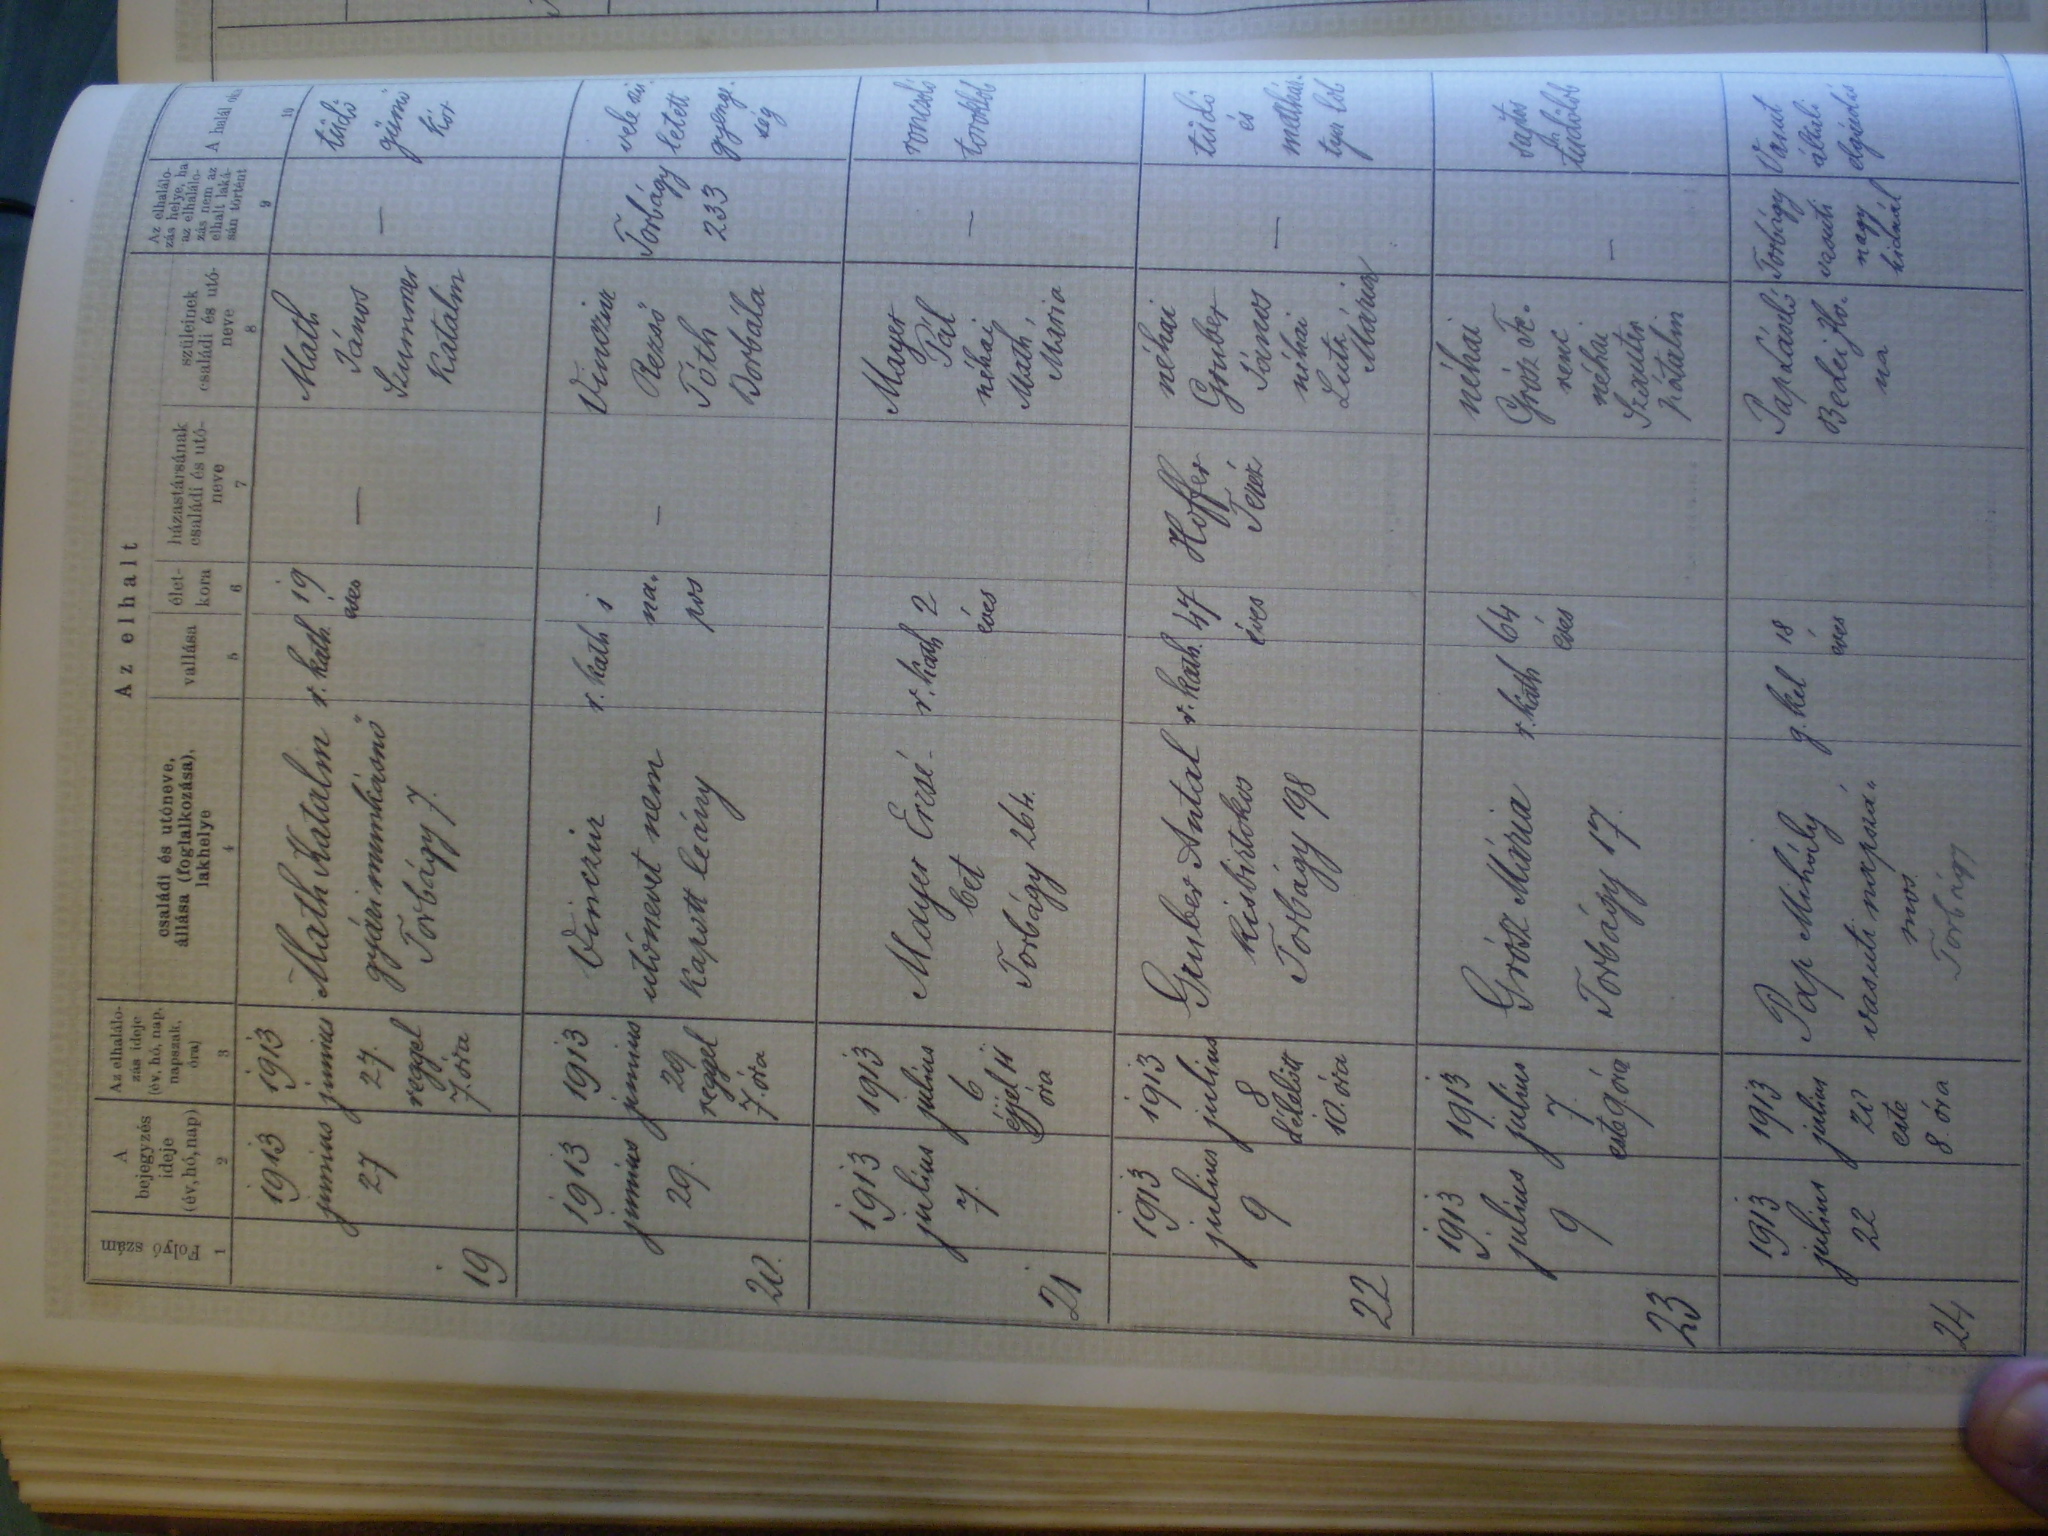 Az elhalt
Folyó szám
1
A bejegyzés ideje (év, hó, nap)
2
Az elhalálo-
zás ideje
(év, hó, nap,
napszak,
óra)
3
családi és utóneve,
állása (foglalkozása),
lakhelye
4
vallása
5
élet-
kora
6
házastársának
családi és utó-
neve
7
szüleinek
családi és utó-
neve
8
Az elhalálo-
zás helye, ha
az elhalálo-
zás nem az
elhalt laká-
sán történt
9
A halál oka
10
19
1913
junius
27
1913
junius
27.
reggel
7. óra
Máth Katalin
gyári munkásnő
Torbágy 7.
r. kath.
19
éves
—
—
Máth
János
Szummer
Katalin
—
tüdő
gümő
kór
20.
1913
junius
29.
1913
junius
29
reggel
7. óra
Vinczir
utónevet nem
kapott leány
r. kath
1
na-
pos
—
Vinczir
Rezső
Tóth
Borbála
Torbágy
233
vele szü
letett
gyenge-
ség
21
1913
julius
7.
1913
julius
6
éjjel 11
óra
Mayer Erzsé-
bet
Torbágy 264.
r. kath
2
éves
Mayer
Pál
néhai
Math
Mária
—
roncsoló
toroklob
22
1913
julius
9
1913
julius
8
délelőtt
10. óra
Gruber Antal
kisbirtokos
Torbágy 198
r. kath.
47
éves
Hoffer
Teréz
néhai
Gruber
János
néhai
Mária
—
tüdő
és
mellhár-
tya lob
23
1913
julius
9
1913
julius
7.
este 9 óra
Grósz Mária
Torbágy 17.
r. kath
64
éves
néhai
Grósz Fe-
renc
néhai
Katalin
—
tüdőlob
24
1913
julius
22
1913
julius
20
este
8. óra
Pap Mihály
vasuti napszá-
mos
Torbágy
g. kel
18
éves
Pap László
Bedei Ilo-
na
Torbágy
vasuti
nagy
hidnál
Vonat
általi
elgázolás